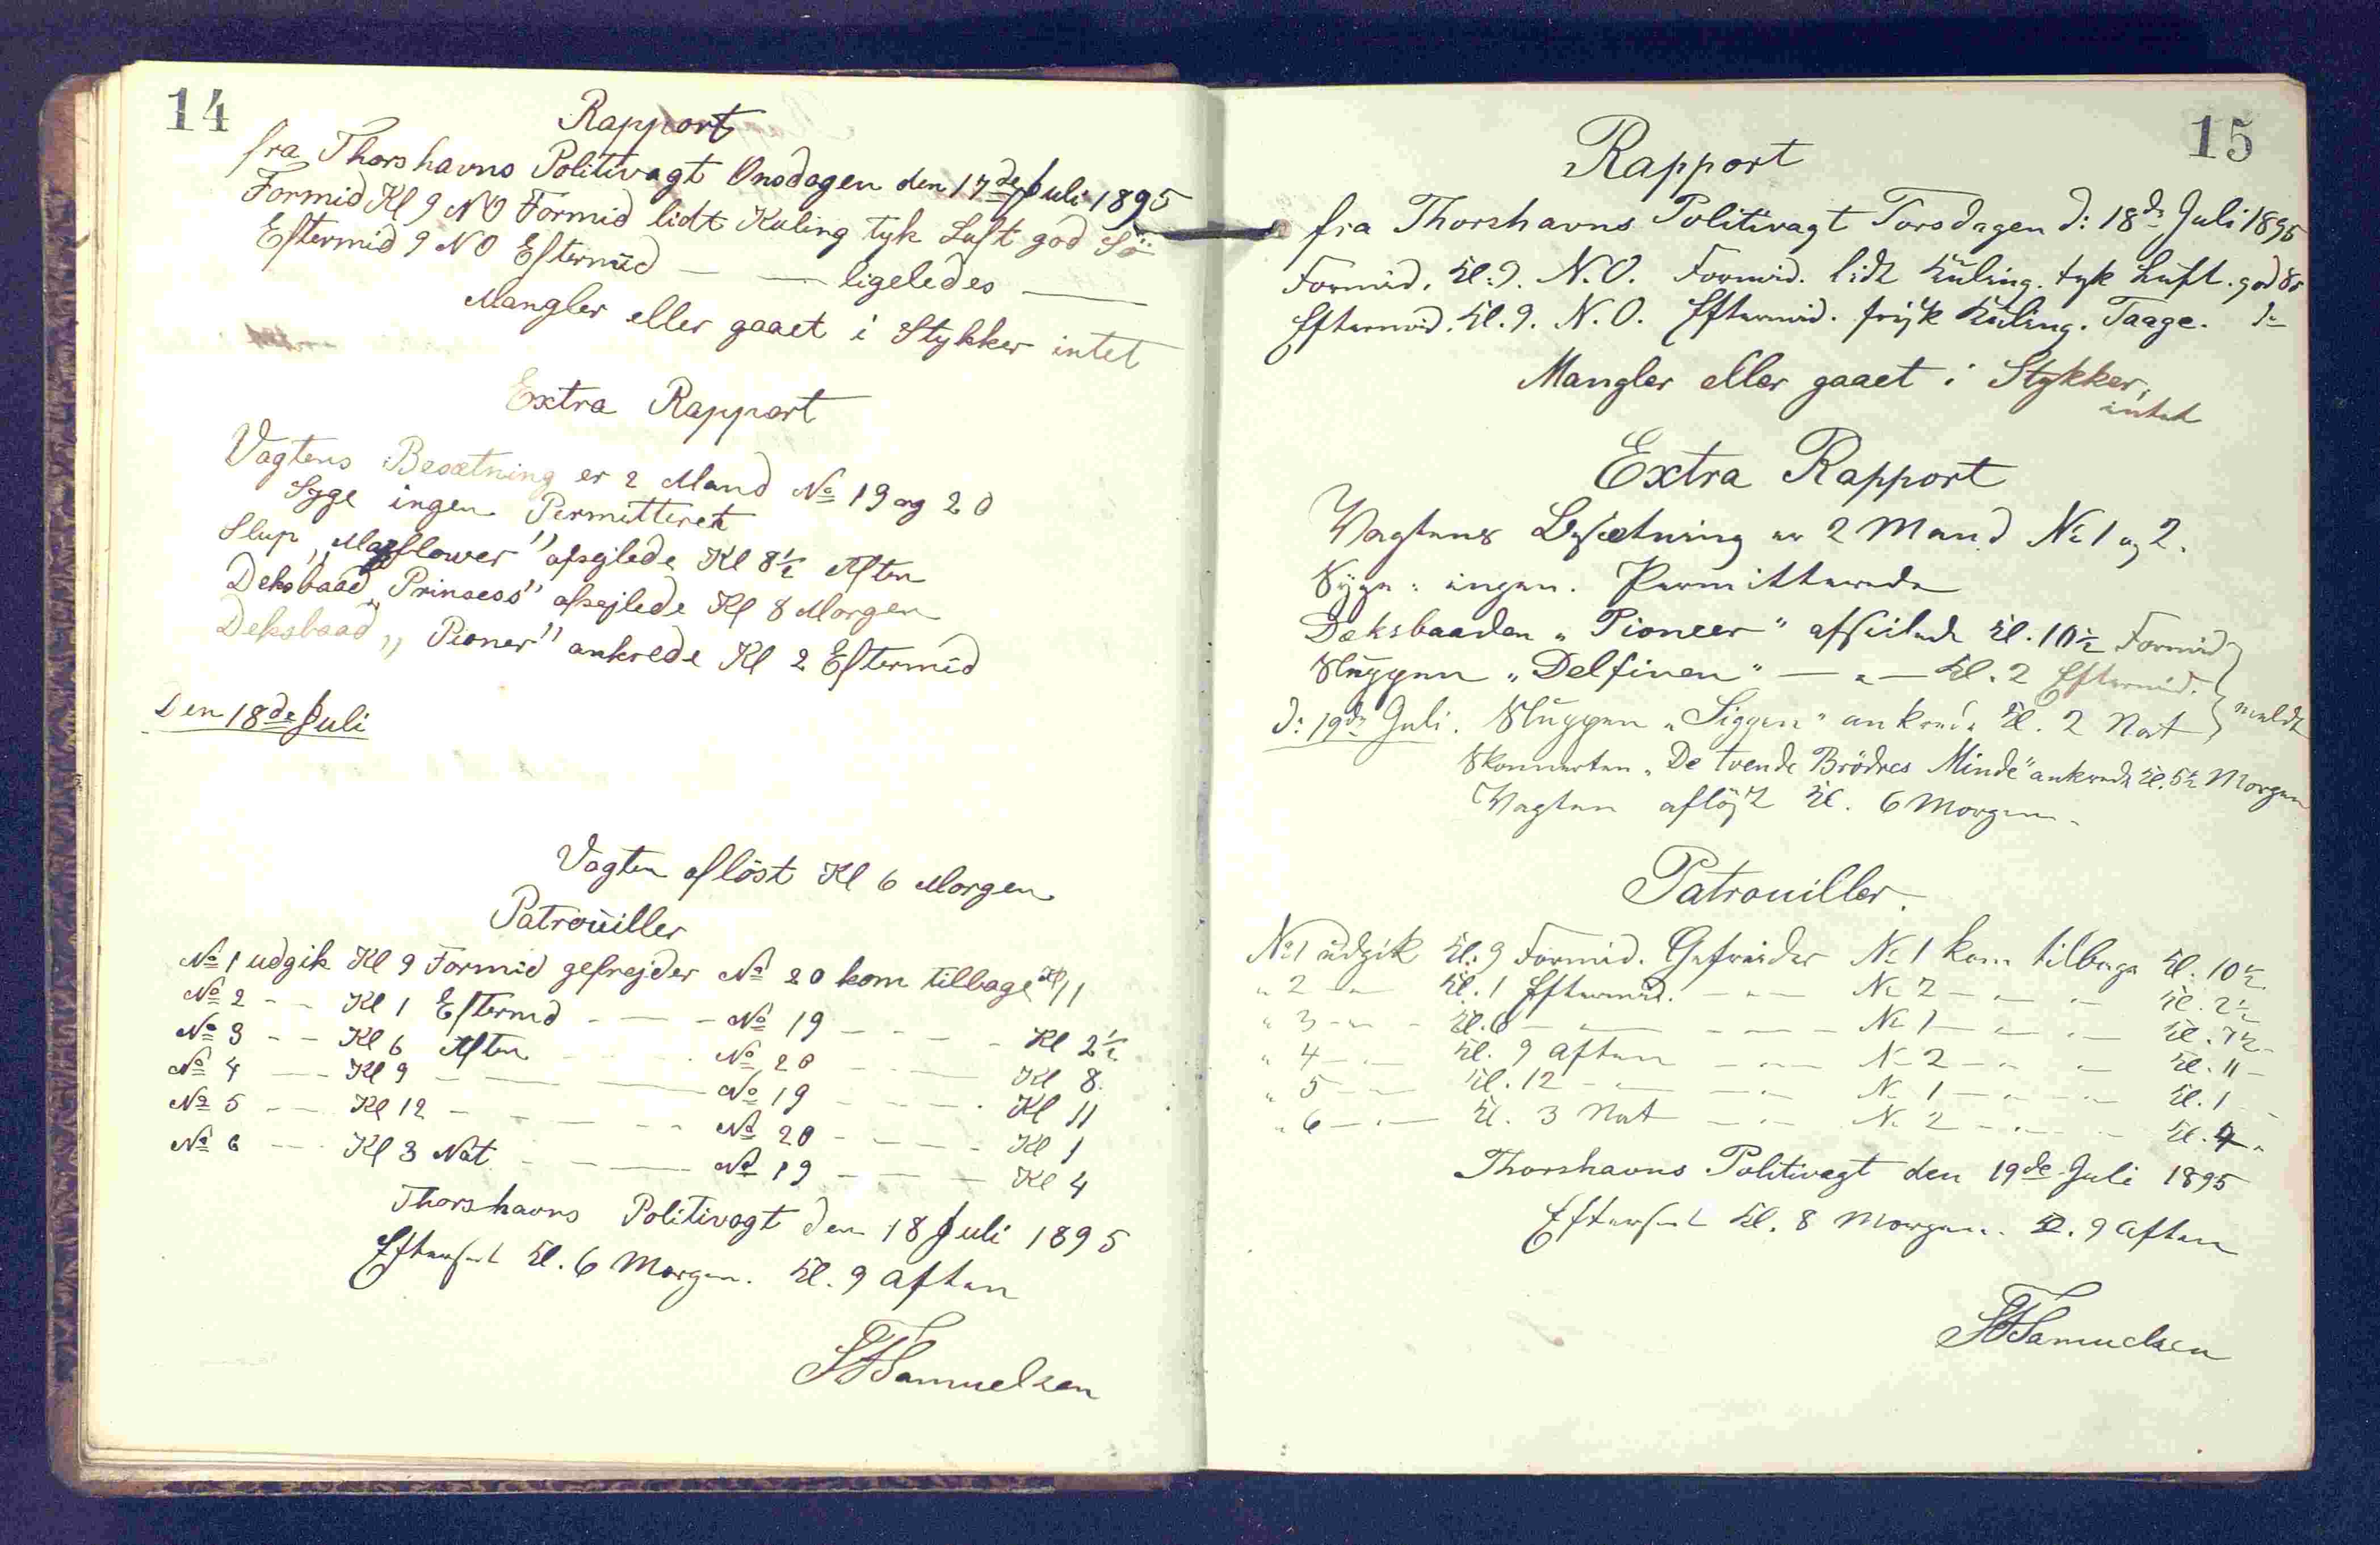 14
Rapport
fra Thorshavns Politivagt Onsdagen den 17de Juli 1895
Formid Kl 9 NO Formid lidt Kuling tyk Luft god Sö
Eftermid 9 NO Eftermid — — ligeledes —
Mangler eller gaaet i Stykker intet
Extra Rapport
Vagtens Besætning er 2 Mand No 19 og 20
Syge ingen Permitteret
Slup „Mayflower" afsejlede Kl 8½ Aften
Deksbaad „Prinsess" afsejlede Kl 8 Morgen
Deksbaad „Pioner" ankrede Kl 2 Eftermid
Den 18de Juli
Vagten aflöst Kl 6 Morgen
Patrouiller
No 1 udgik Kl 9 Formid gefrejder No 20 kom tilbage Kl 11
No 2 - - Kl 1 Eftermd - - - No 19 - - - Kl 2½
No 3 - - Kl 6 Aften - - - No 20 - - - Kl 8
No 4 - - Kl 9 - - - No 19 - - - Kl 11
No 5 - - Kl 12 - - - No 20 - - - Kl 1
No 6 - - Kl 3 Nat - - - No 19 - - - Kl 4
Thorshavns Politivagt den 18 Juli 1895
Efterset Kl. 6 Morgen. Kl. 9 Aften
Samuelsen
15
Rapport
fra Thorshavns Politivagt Torsdagen d: 18de Juli 1895
Formid. Kl. 9. N.O. Formid. lidt Kuling. tyk Luft. god Sö
Eftermid. Kl. 9. N.O. Eftermid. frisk Kuling. Taage. do
Mangler eller gaaet i Stykker,
intet
Extra Rapport
Vagtens Besætning er 2 Mand No 1 og 2.
Syge: ingen. Permitterede
Deksbaaden „Pioneer" afseilede Kl. 10½ Formid
Sluppen „Delfinen" — „ — Kl. 2 Eftermid.
d: 19de Juli. Sluppen „Siggen" ankrede Kl. 2 Nat } meldt
Skonnerten „De tvende Brödres Minde" ankrede Kl. 5½ Morgen
Vagten aflöst Kl. 6 Morgen.
Patrouiller.
No 1 udgik Kl. 9 Formid. Gefreider No 1 kom tilbage Kl. 10½
„ 2 - „ - Kl. 1 Eftermid. - „ - No 2 - „ - Kl. 2½
„ 3 - „ - Kl. 6 - „ - No 1 - „ - Kl. 7½
„ 4 - „ - Kl. 9 Aften - „ - No 2 - „ - Kl. 11
„ 5 - „ - Kl. 12 - „ - No 1 - „ - Kl. 1
„ 6 - „ - Kl. 3 Nat - „ - No 2 - „ - Kl. 4
Thorshavns Politivagt den 19de Juli 1895
Efterset Kl. 8 Morgen. Kl. 9 Aften
Samuelsen